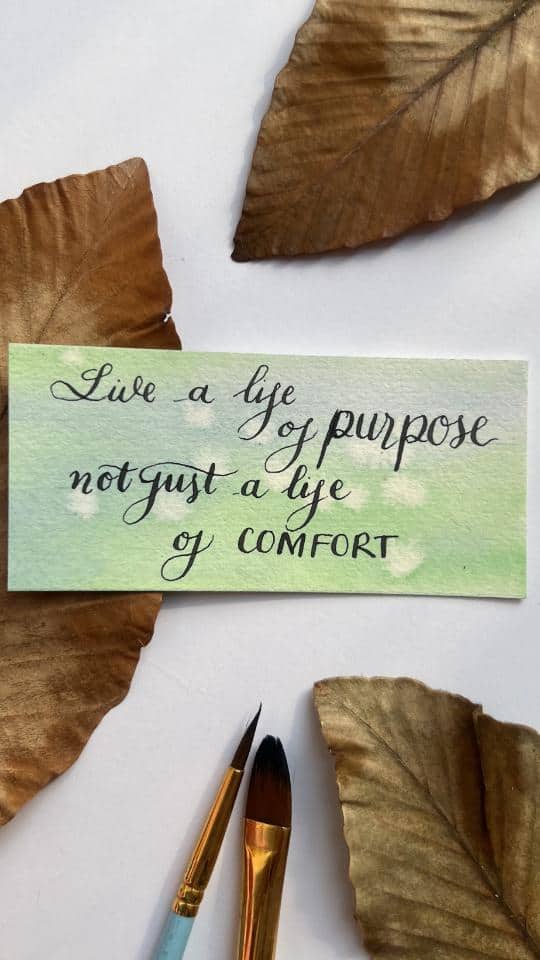 Live a life
of purpose
not just a life
of COMFORT